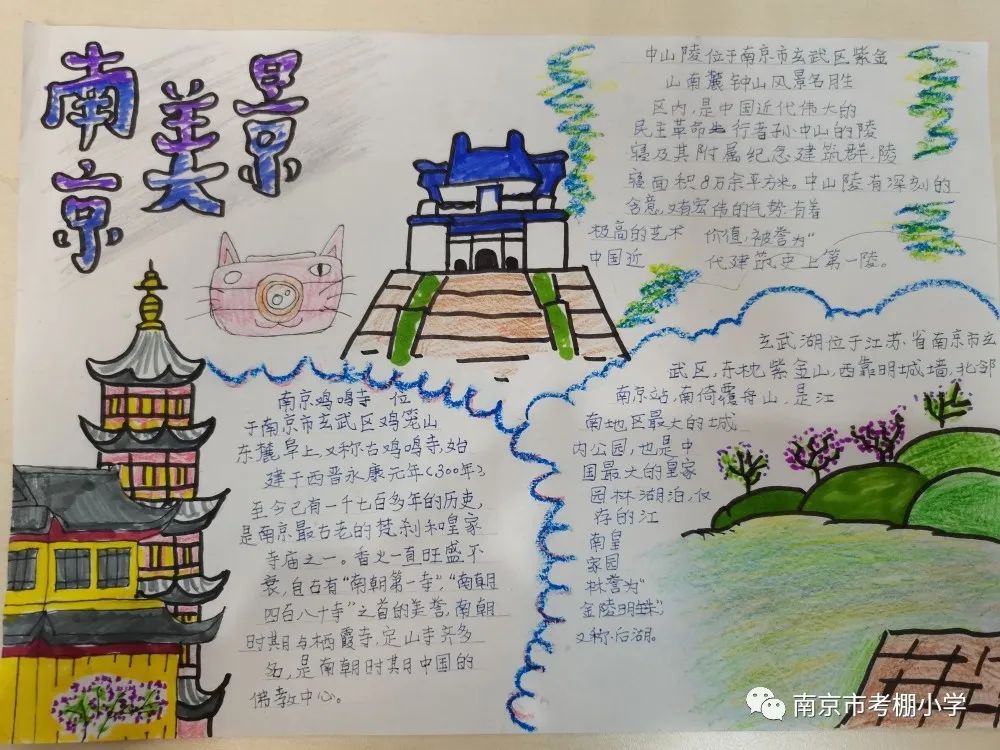 南京美景
中山陵位于南京市玄武区紫金
山南麓钟山风景名胜
区内,是中国近代伟大的
民主革命先行者孙中山的陵
寝及其附属纪念建筑群,陵
寝面积8万余平方米。中山陵有深刻的
含意,又有宏伟的气势.有着
极高的艺术 价值,被誉为“
中国近 代建筑史上第一陵。
玄武湖位于江苏省南京市玄
武区,东枕紫金山,西靠明城墙,北邻
南京站,南倚覆舟山,是江
南地区最大的城
内公园,也是中
国最大的皇家
园林湖泊,仅
存的江
南皇
家园
林誉为“
金陵明珠”,
又称后湖。
南京鸡鸣寺 位
于南京市玄武区鸡笼山
东麓阜上,又称古鸡鸣寺,始
建于西晋永康元年(300年)
至今已有一千七百多年的历史,
是南京最古老的梵刹和皇家
寺庙之一。香火一直旺盛不
衰,自古有“南朝第一寺”,“南朝
四百八十寺”之首的美誉,南朝
时期与栖霞寺,定山寺齐
名,是南朝时期中国的
佛教中心。
南京市考棚小学